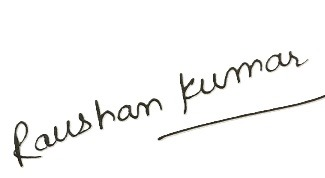 Raushan Kumar